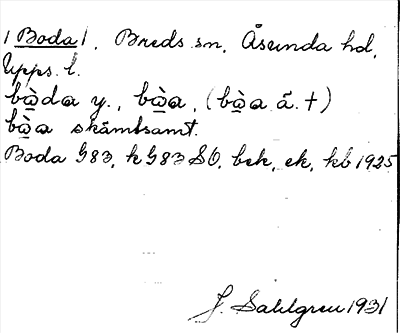 /Boda/, Breds sn, Åsunda hd,
Upps. l.
bò̱da y., bò̱a, (bò̱a ä. †)
bò̱a skämtsamt.
Boda G83, k G83 SO, bek, ek, kb 1925
J. Sahlgren 1931